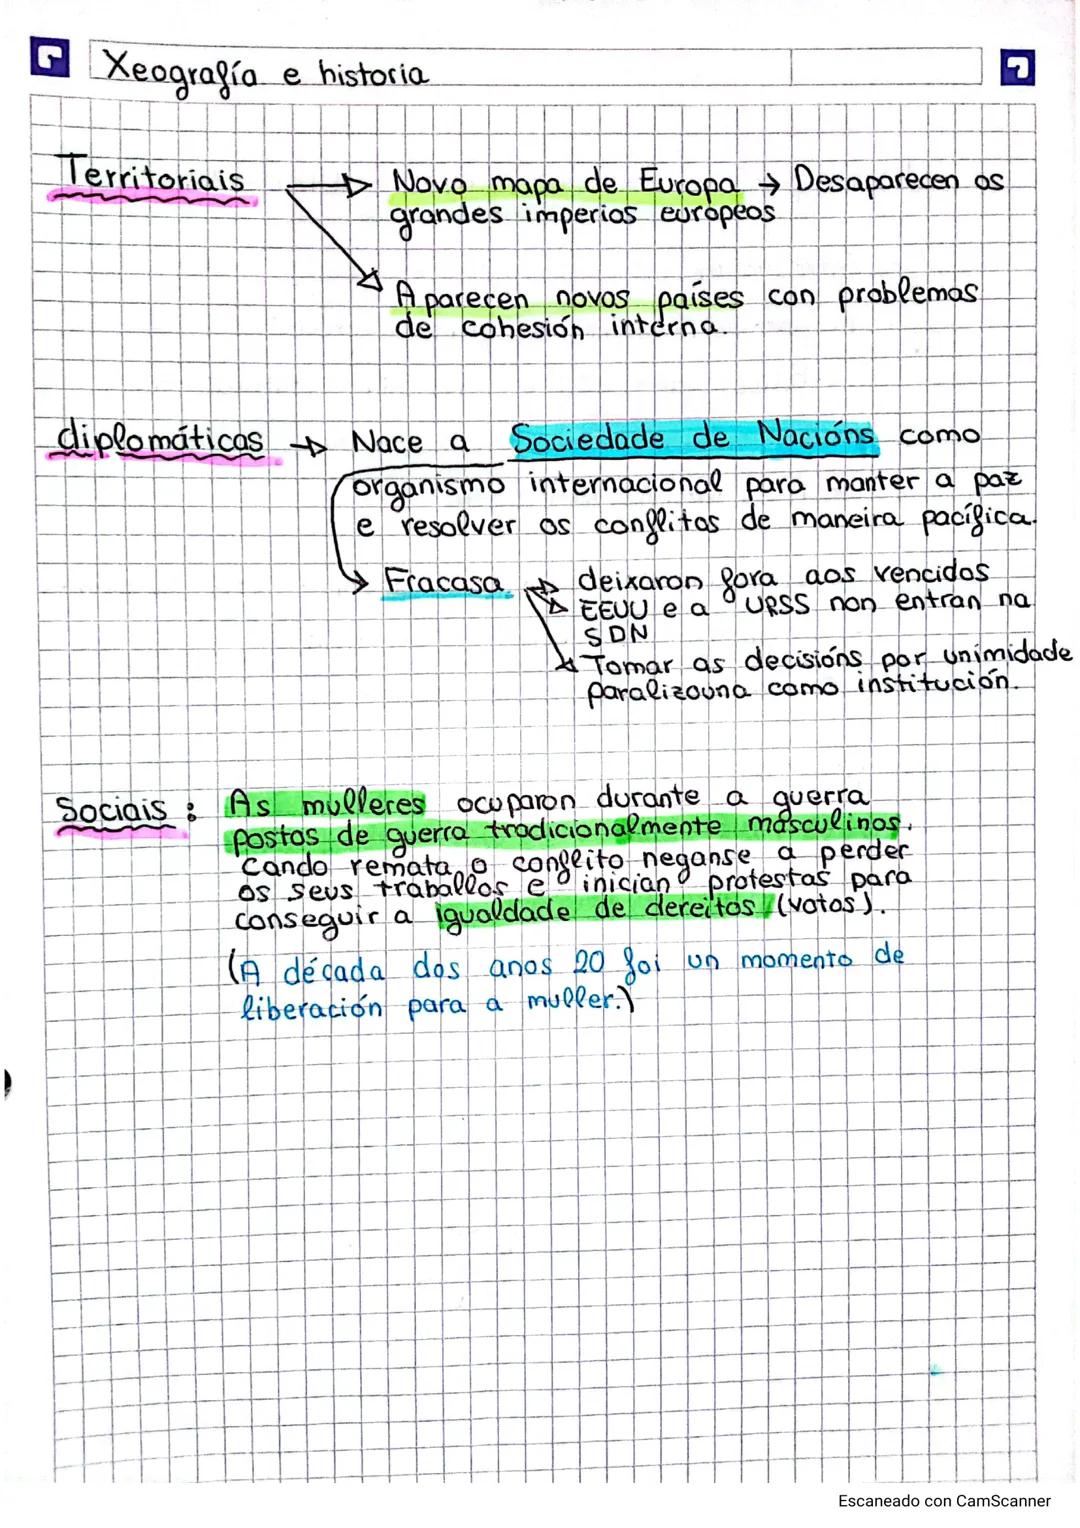 Xeografía e historia
Territoriais → Novo mapa de Europa → Desaparecen os
grandes imperios europeos
Aparecen novos países con problemas
de cohesión interna.
diplomáticas → Nace a Sociedade de Nacións como
organismo internacional para manter a paz
e resolver os conflitos de maneira pacífica.
→ Fracasa → deixaron fora aos vencidos
EEUU e a URSS non entran na
SDN
Tomar as decisións por unimidade
paralizouna como institución.
Sociais : As mulleres ocuparon durante a guerra
postos de guerra tradicionalmente masculinos.
Cando remata o conflito neganse a perder
os seus traballos e inician protestas para
conseguir a igualdade de dereitos (votos).
(A década dos anos 20 foi un momento de
liberación para a muller.)
Escaneado con CamScanner